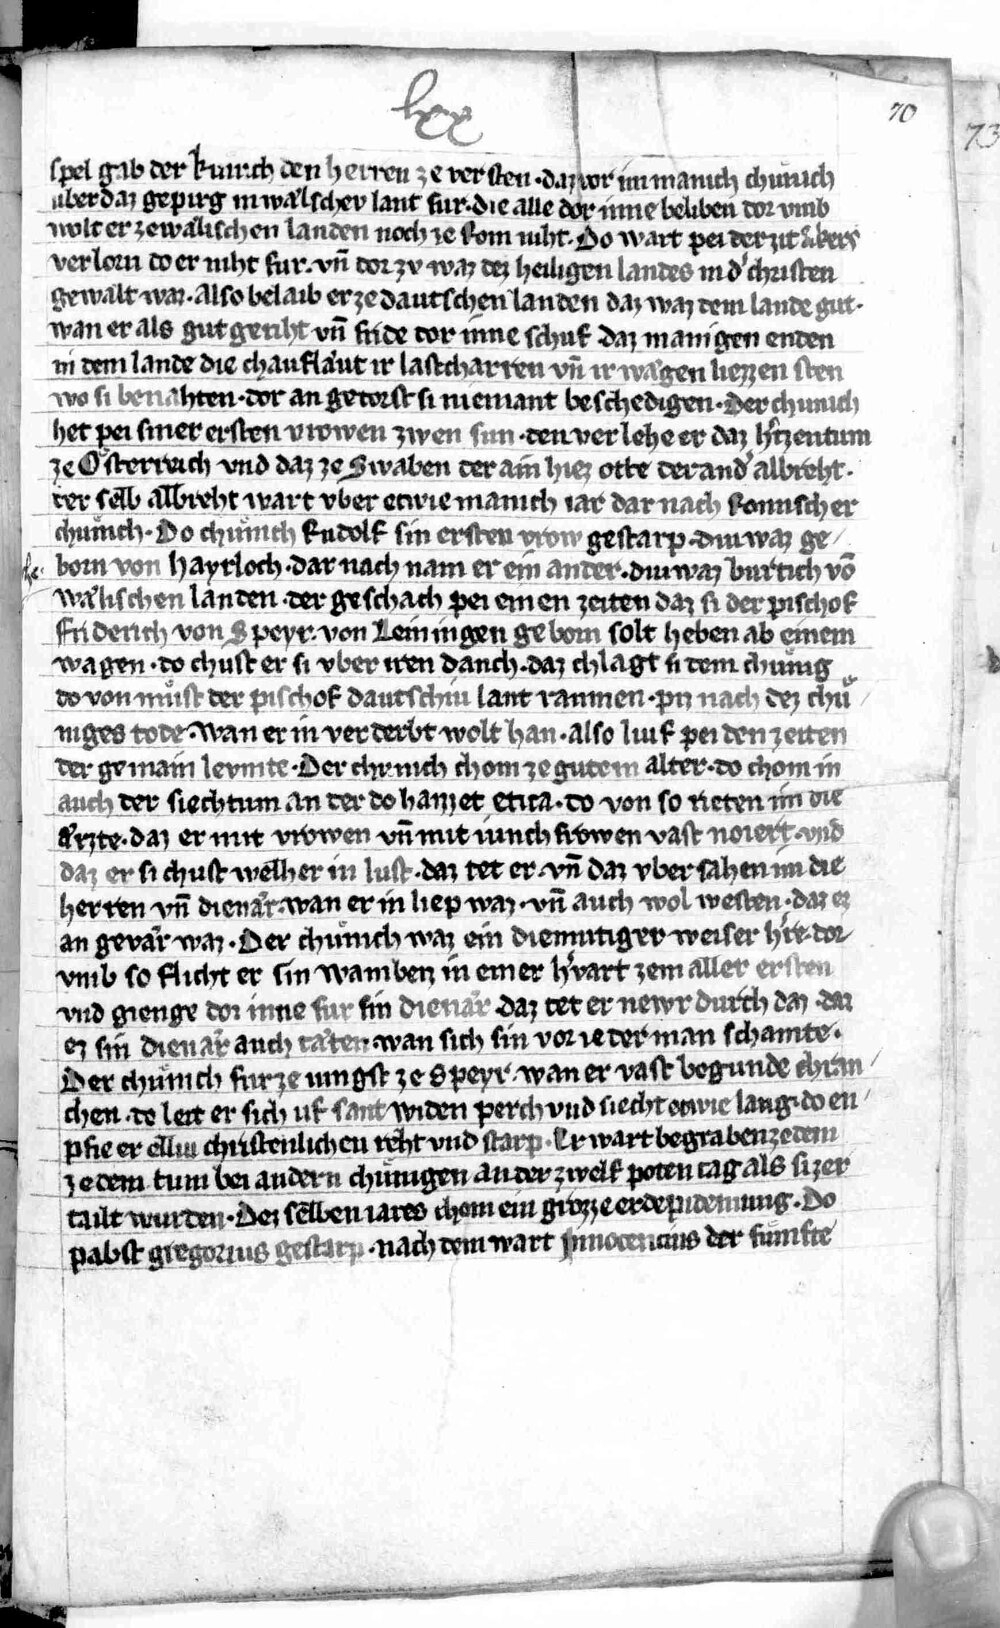 lxx
70
73
spel gab der kunich den herren ze versten · daz vor im manich chünich
uber daz gepirg in wälschev lant fur · die alle dor inne beliben dor vmb
wolt er ze wälischen landen noch ze Rom niht · Do wart pei der zit akers
verlorn do er niht fur · vn̄ dor zv waz dez heiligen landes in d' christen
gewalt waz · Also belaib er ze dautschen landen daz waz dem lande gut ·
wan er als gut geriht vn̄ fride dor inne schuf daz manigen enden
in dem lande die chauflaͤut ir lastcharren vn̄ ir waͤgen liezzen sten
wo si benahten · dor an getorst si niemant beschedigen · Der chunich
het pei siner ersten vrowen zwen sun · den verlehe er daz h'tzentum
ze Oͤsterreich vnd daz ze Swaben der ain hiez otte der and' albreht ·
der selb albreht wart vber etwie manich iar dar nach Romischer
chuͤnich · Do chuͤnich Rudolf sin ersten vrow gestarp · diu waz ge
born von hayrloch · dar nach nam er ein ander · diu waz burtich vō
waͤlischen landen · der geschach pei einen zeiten daz si der pischof
friderich von Speyr · von Leiningen geborn solt heben ab einem
wagen · do chust er si vber iren danch · daz chlagt si dem chuͤnig
do von muͤst der pischof dautschiu lant raumen · piz nach dez chuͤ
niges tode · Wan er in verderbt wolt han · also liuf pei den zeiten
der gemain levmte · Der chunich chom ze gutem alter · do chom in
auch der siechtum an der do haizzet etica · do von so rieten im die
Aͤrzte · daz er mit vrowen vn̄ mit iunchfrowen vast noiert · vnd
daz er si chust welher in lust · daz tet er · vn̄ daz vber sahen im die
herren vn̄ dienaͤr · wan er in liep waz · vn̄ auch wol westen · daz ez
an gevaͤr waz · Der chuͤnich waz ein diemutiger weiser h're · dor
vmb so flicht er sin wambez in einer h'vart zem aller ersten
vnd gienge dor inne fur sin dienaͤr · daz tet er newr durch daz · daz
ez sin dienaͤr auch taͤten · wan sich sin vor ieder man schamte ·
Der chuͤnich fur ze iungst ze Speyr · wan er vast begunde chran
chen · do leit er sich uf sant widen perch vnd siecht etwie lang · do en
pfie er elliu christenlichen reht vnd starp · Er wart begraben ze dem
ze dem tum bei andern chuͤnigen an der zwelf poten tag als si zer
tailt wurden · Dez selben iares chom ein grozze erdepidemung · Do
pabst gregorius gestarp · nach dem wart Innocencius der fuͤnfte